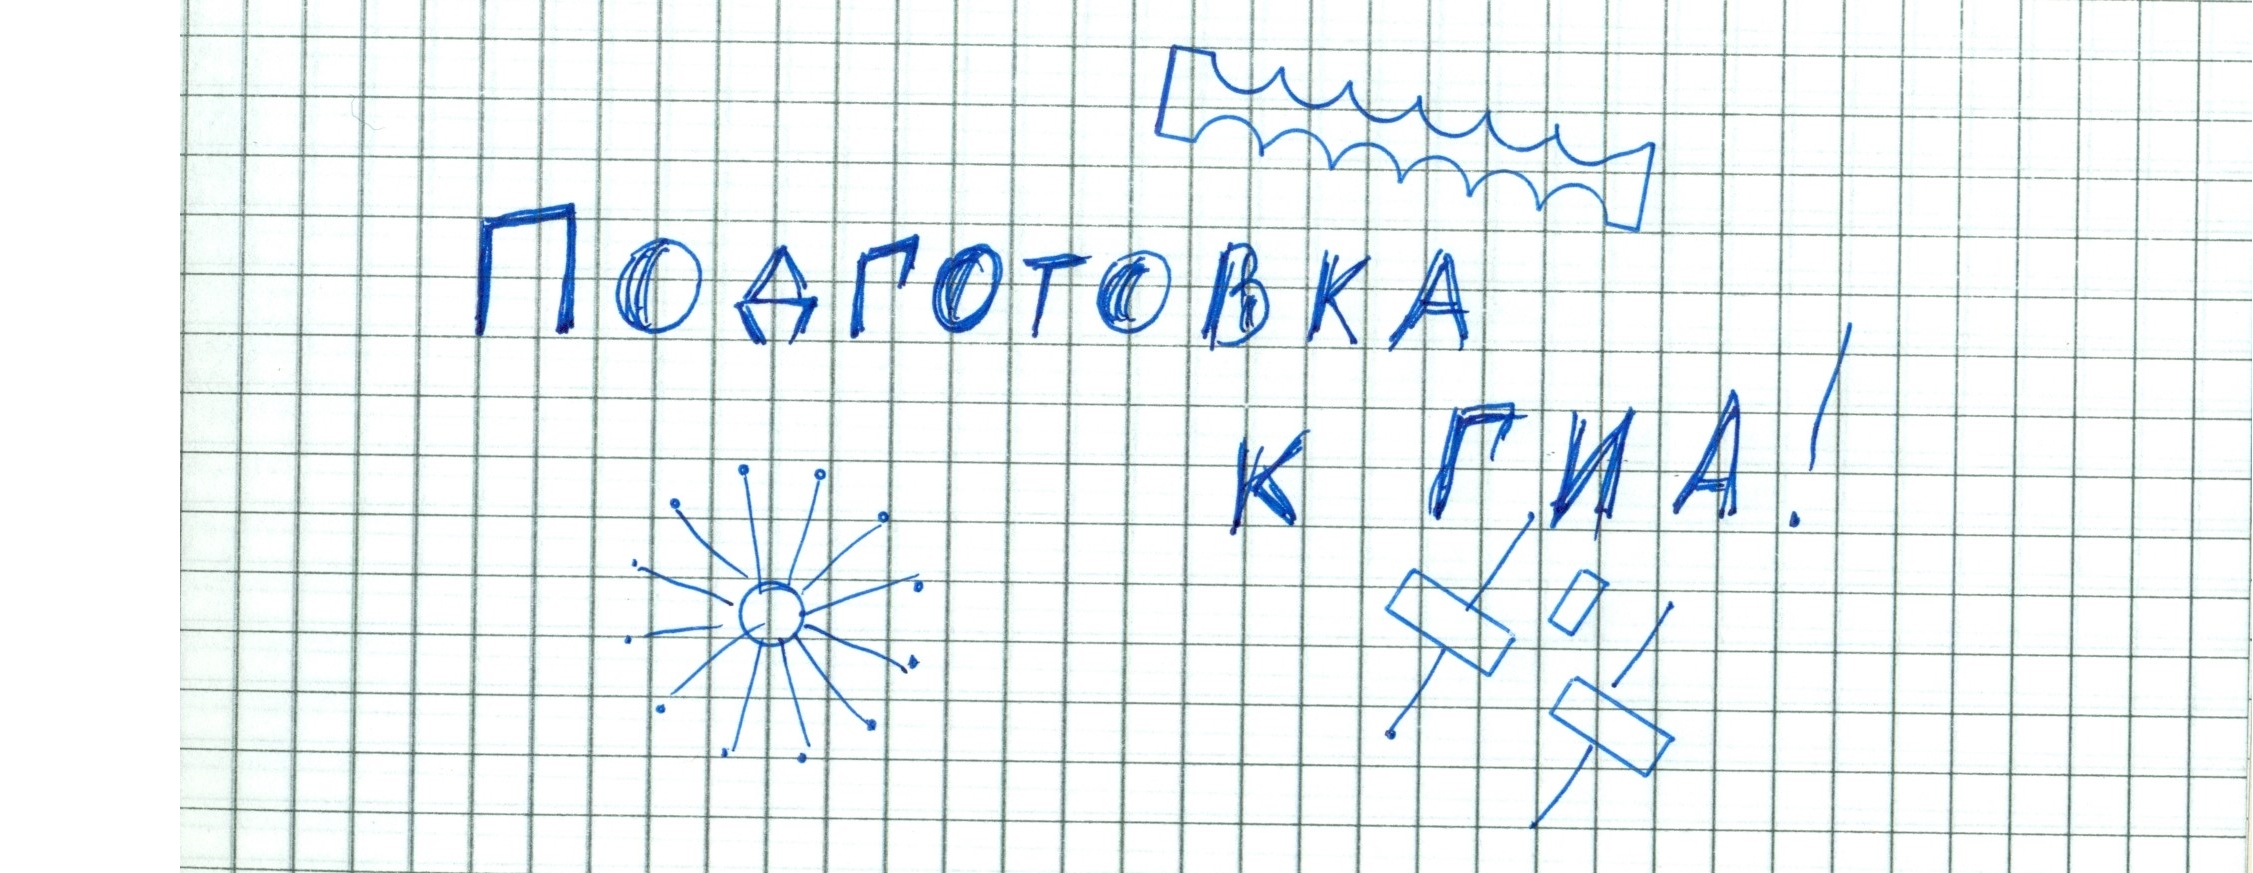 Подготовка
к ГИА!